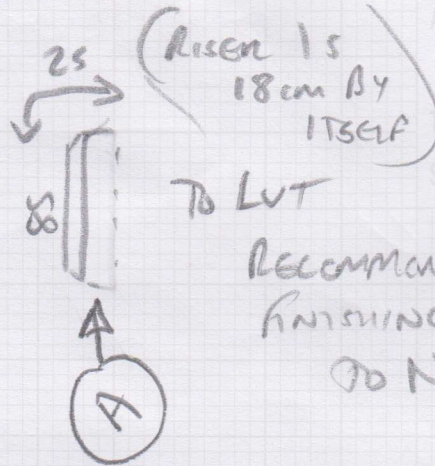 25
(RISER IS
18cm BY
ITSELF)
86
TO LVT
RECOMMEN
FINISHING
TO N
A